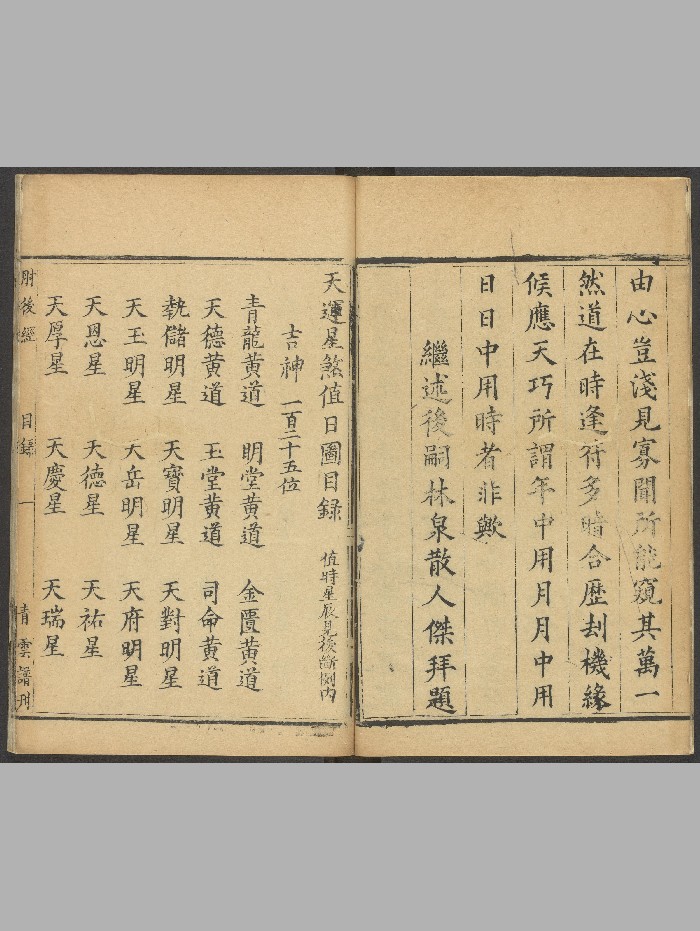 由心豈淺見寡聞所能窺其萬一
然道在時逢符多暗合歷刦機緣
候應天巧所謂年中用月月中用
日日中用時者非歟
繼述後嗣林泉散人傑拜題
天運星煞值日圖目録 值時星辰見後斷例內
吉神 一百二十五位
青龍黄道 明堂黄道 金匱黄道
天德黄道 玉堂黄道 司命黄道
執儲明星 天寶明星 天對明星
天玉明星 天岳明星 天府明星
天恩星 天德星 天祐星
天厚星 天慶星 天瑞星
肘後經 目録 一 青雲譜刊